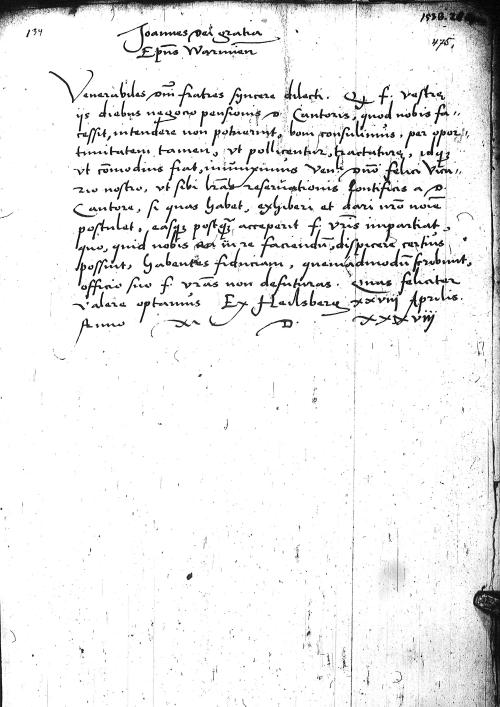 134
1538. 28
475.
Joannes Dei gratia
Epūs Warmien
Venerabiles dn̄i fratres syncere dilecti. Qd f. vestre
ijs diebus negocio pensionis d. Cantoris, quod nobis fa-
cessit, intendere non potuerint, boni consulimus. per opor-
tunitatem tamen, vt pollicentur, tractature, idqz
vt cōmodius fiat, iniunximus Venli dn̄o felici Vica-
rio nostro, vt sibi lrās reseruationis pontificis a d.
Cantore, si quas habet, exhiberi et dari nrō noīe
postulet, easqz postqz acceperit f. vrīs impartiat,
quo, quid nobis in re faciendū, dispicere certius
possint, habentes fiduciam, quemadmodū scribunt,
officio suo f. vrās non defuturas. Quas feliciter
valere optamus Ex Heilsberg xxviij Aprilis.
Anno M. D. xxxviij